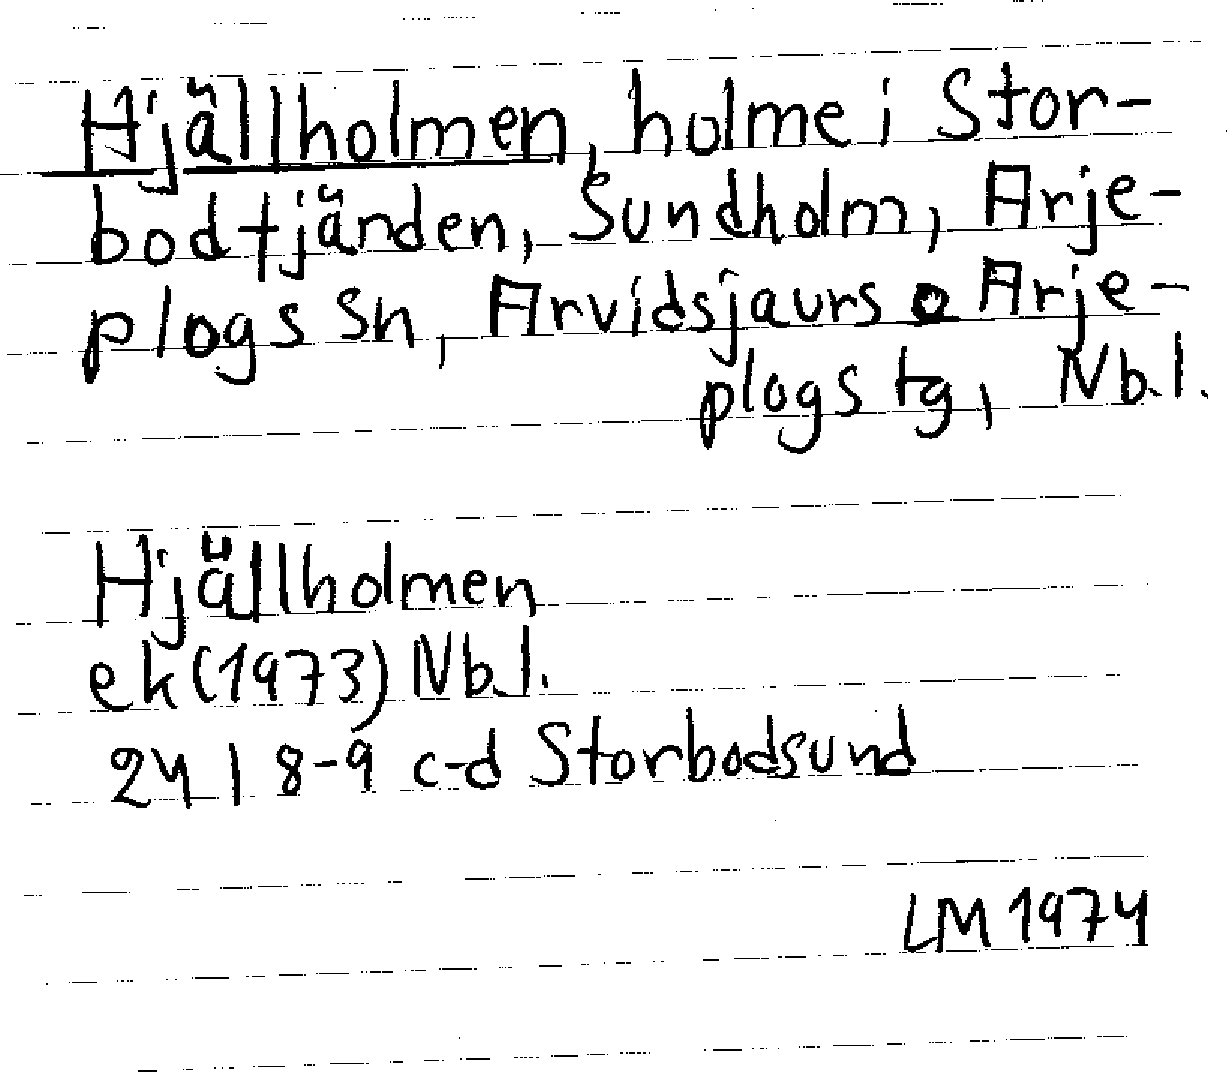 Hjällholmen, holme i Stor-
bodtjärden, Sundholm, Arje-
plogs sn, Arvidsjaurs o Arje-
plogs tg, Nb.l.
Hjällholmen
ek (1973) Nb.l.
24 I 8-9 c-d Storbodsund
LM 1974